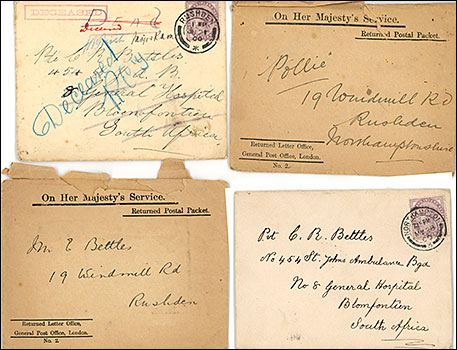 DECEASED
Deceased
RUSHDEN
Pte C. B. Bettles
454
B.
General Hospital
Bloemfontien
South Africa
Deceased
On Her Majesty's Service.
Returned Postal Packet.
"Pollie"
19 Windmill Rd
Rushden
Northamptonshire
Returned Letter Office,
General Post Office, London.
No. 2.
On Her Majesty's Service.
Returned Postal Packet.
Bettles
19 Windmill Rd
Rushden
Returned Letter Office,
General Post Office, London.
No. 2.
Pvt C. B. Bettles
No 454 St. Johns Ambulance Bgd
No 8 General Hospital
Blomfontien
South Africa